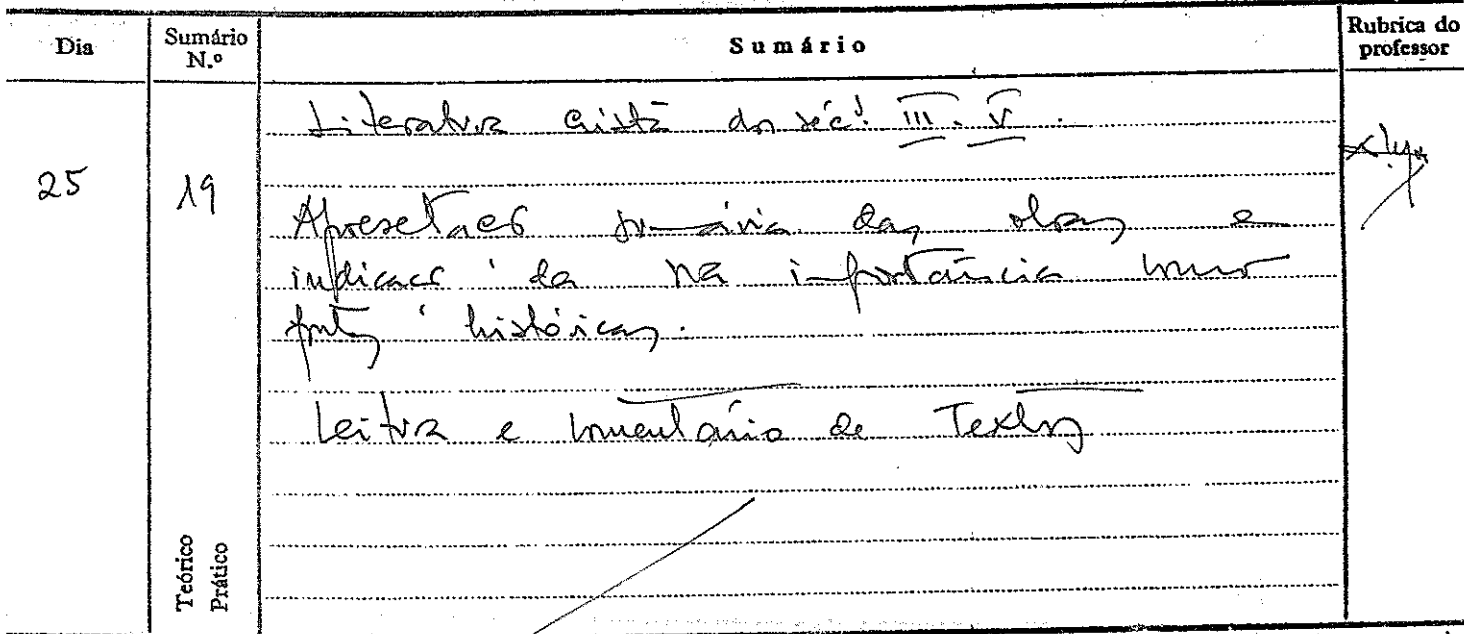 Dia
Sumário N.º
Sumário
Rubrica do professor
25
19
Literatura cristã dos séc.s III-V.
Apresentação sumária das obras e
indicação da sua importância como
fontes históricas.
Leitura e comentário de Textos
Teórico
Prático